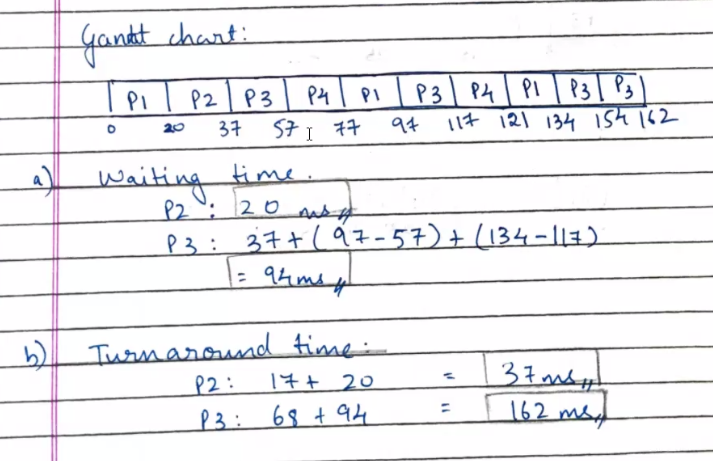 Gantt chart:
P1 | P2 | P3 | P4 | P1 | P3 | P4 | P1 | P3 | P3
0 20 37 57 77 97 117 121 134 154 162
a) Waiting time.
P2 : 20 ms
P3 : 37 + (97-57) + (134-117)
= 94 ms
b) Turnaround time:
P2 : 17 + 20 = 37 ms
P3 : 68 + 94 = 162 ms